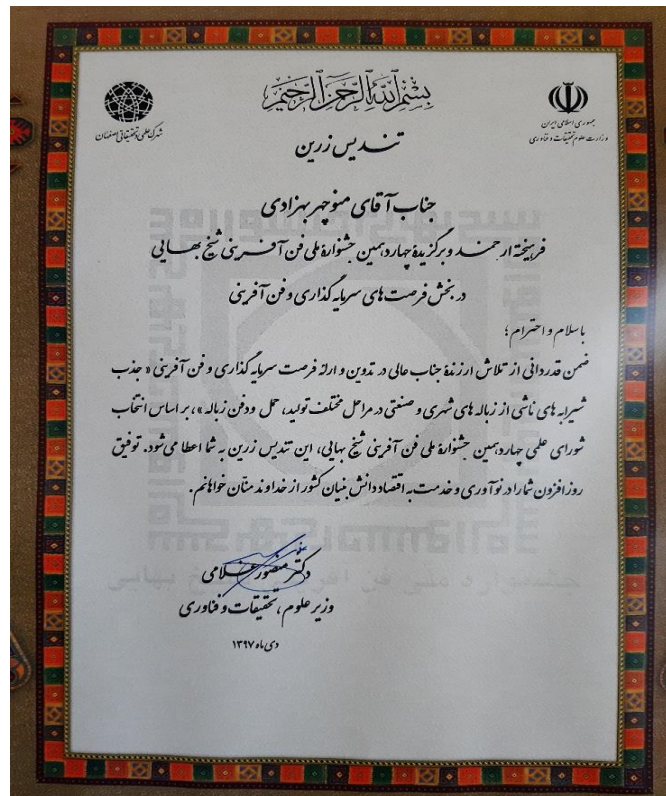 بسم الله الرحمن الرحیم
جمهوری اسلامی ایران
وزارت علوم تحقیقات و فناوری
شرکت علمی و تحقیقاتی اصفهان
تندیس زرین
جناب آقای منوچهر بهزادی
فرهیخته ارجمند و برگزیده چهاردهمین جشنواره ملی فن آفرینی شیخ بهایی
در بخش فرصت های سرمایه گذاری و فن آفرینی
با سلام و احترام؛
ضمن قدردانی از تلاش ارزنده جناب عالی در تدوین و ارائه فرصت سرمایه گذاری و فن آفرینی « جذب
شیرابه های ناشی از زباله های شهری و صنعتی در مراحل مختلف تولید، حمل و دفن زباله »، بر اساس انتخاب
شورای علمی چهاردهمین جشنواره ملی فن آفرینی شیخ بهایی، این تندیس زرین به شما اعطا می شود. توفیق
روزافزون شما را در نوآوری و خدمت به اقتصاد دانش بنیان کشور از خداوند منان خواهانم.
دکتر منصور غلامی
وزیر علوم، تحقیقات و فناوری
دی ماه ۱۳۹۷